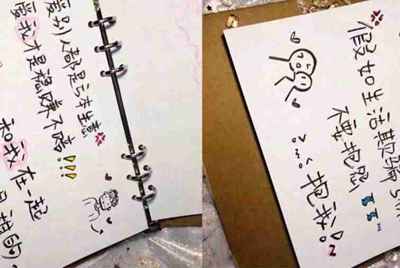 愛別人都是亏本生意
愛我才是穩賺不賠!!!
和我在一起
是甜的
假如生活欺騙
不要抱怨
>...< 抱我!~